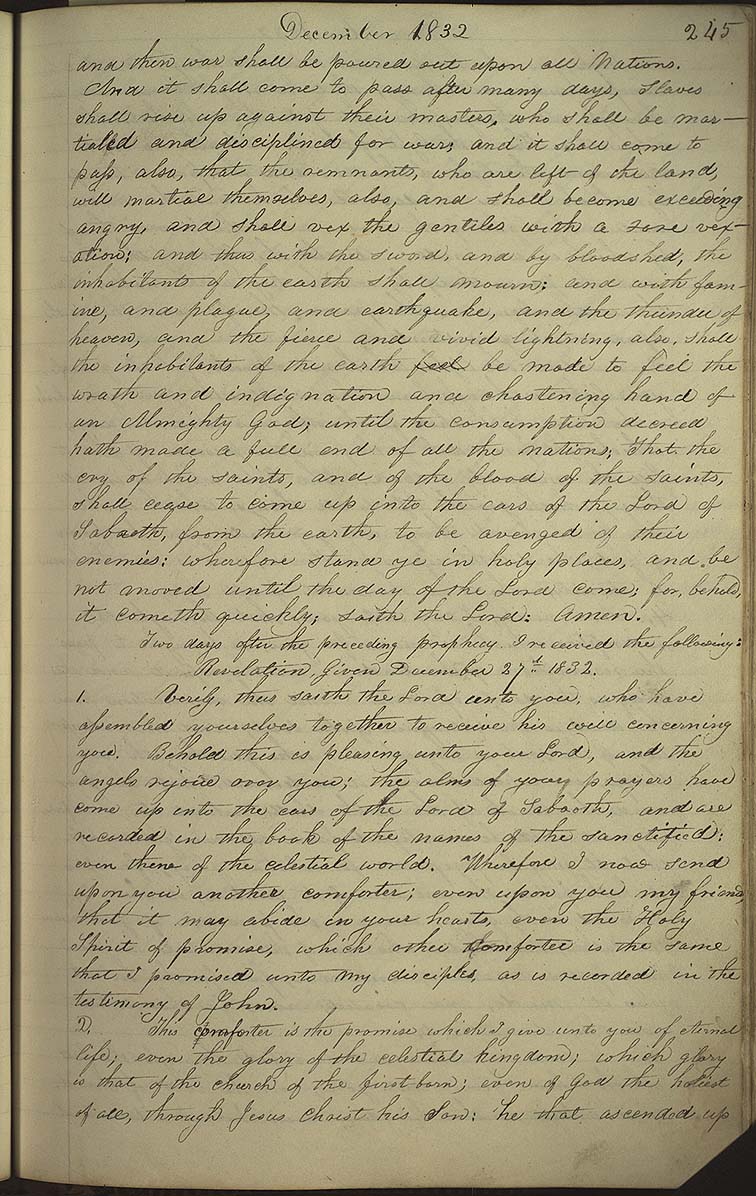 December 1832 245
and then war shall be poured out upon all Nations.
And it shall come to pass after many days, Slaves
shall rise up against their masters, who shall be mar-
tialed and disciplined for war; and it shall come to
pass, also, that the remnants, who are left of the land,
will martial themselves, also, and shall become exceeding
angry, and shall vex the gentiles with a sore vex-
ation; and thus with the sword, and by bloodshed, the
inhabitants of the earth shall mourn; and with fam-
ine, and plague, and earthquake, and the thunder of
heaven, and the fierce and vivid lightning, also, shall
the inhabitants of the earth feel be made to feel the
wrath and indignation and chastening hand of
an Almighty God; until the consumption decreed
hath made a full end of all the nations; That the
cry of the saints, and of the blood of the saints,
shall cease to come up into the ears of the Lord of
Sabaoth, from the earth, to be avenged of their
enemies: wherefore stand ye in holy places, and be
not moved until the day of the Lord come; for, behold,
it cometh quickly; saith the Lord: Amen.
Two days after the preceding prophecy I received the following:
Revelation Given December 27th 1832.
1. Verily, thus saith the Lord unto you, who have
assembled yourselves together to receive his will concerning
you. Behold this is pleasing unto your Lord, and the
angels rejoice over you; the alms of your prayers have
come up into the ears of the Lord of Sabaoth, and are
recorded in the book of the names of the sanctified;
even them of the celestial world. Wherefore I now send
upon you another comforter; even upon you my friends,
that it may abide in your hearts, even the Holy
Spirit of promise, which other Comforter is the same
that I promised unto my disciples, as is recorded in the
testimony of John.
2. This comforter is the promise which I give unto you of eternal
life; even the glory of the celestial kingdom; which glory
is that of the church of the first born; even of God the holiest
of all, through Jesus Christ his Son: he that ascended up